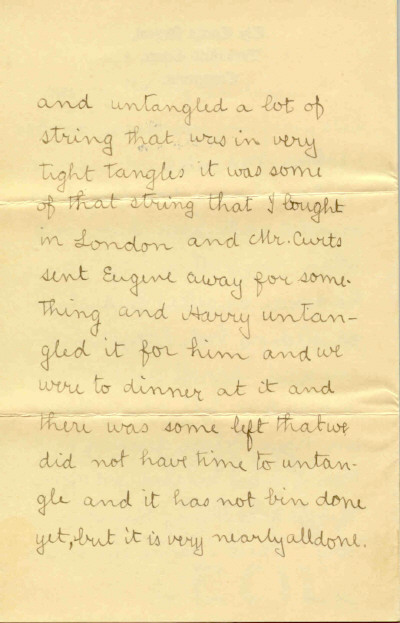 and untangled a lot of
string that was in very
tight tangles it was some
of that string that I bought
in London and Mr. Curts
sent Eugene away for some-
thing and Harry untan-
gled it for him and we
were to dinner at it and
there was some left that we
did not have time to untan-
gle and it has not bin done
yet, but it is very nearly all done.